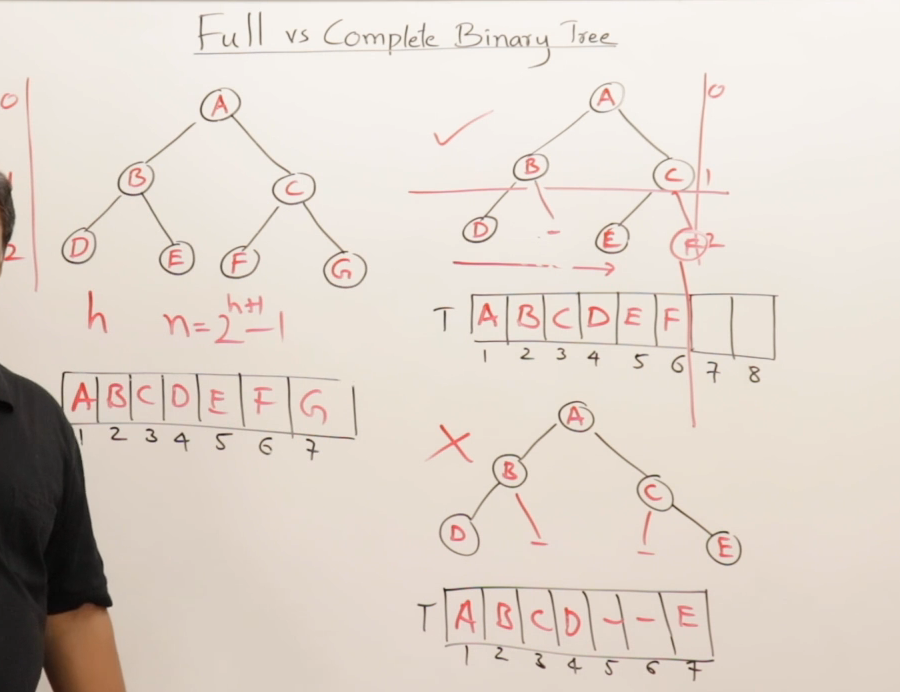 Full vs Complete Binary Tree
0
1
2
A
B C
D E F G
h n=2^h+1 -1
A B C D E F G
1 2 3 4 5 6 7
✓
A 0
B C 1
D - E F 2
T A B C D E F
1 2 3 4 5 6 7 8
X
A
B C
D - - E
T A B C D - - E
1 2 3 4 5 6 7